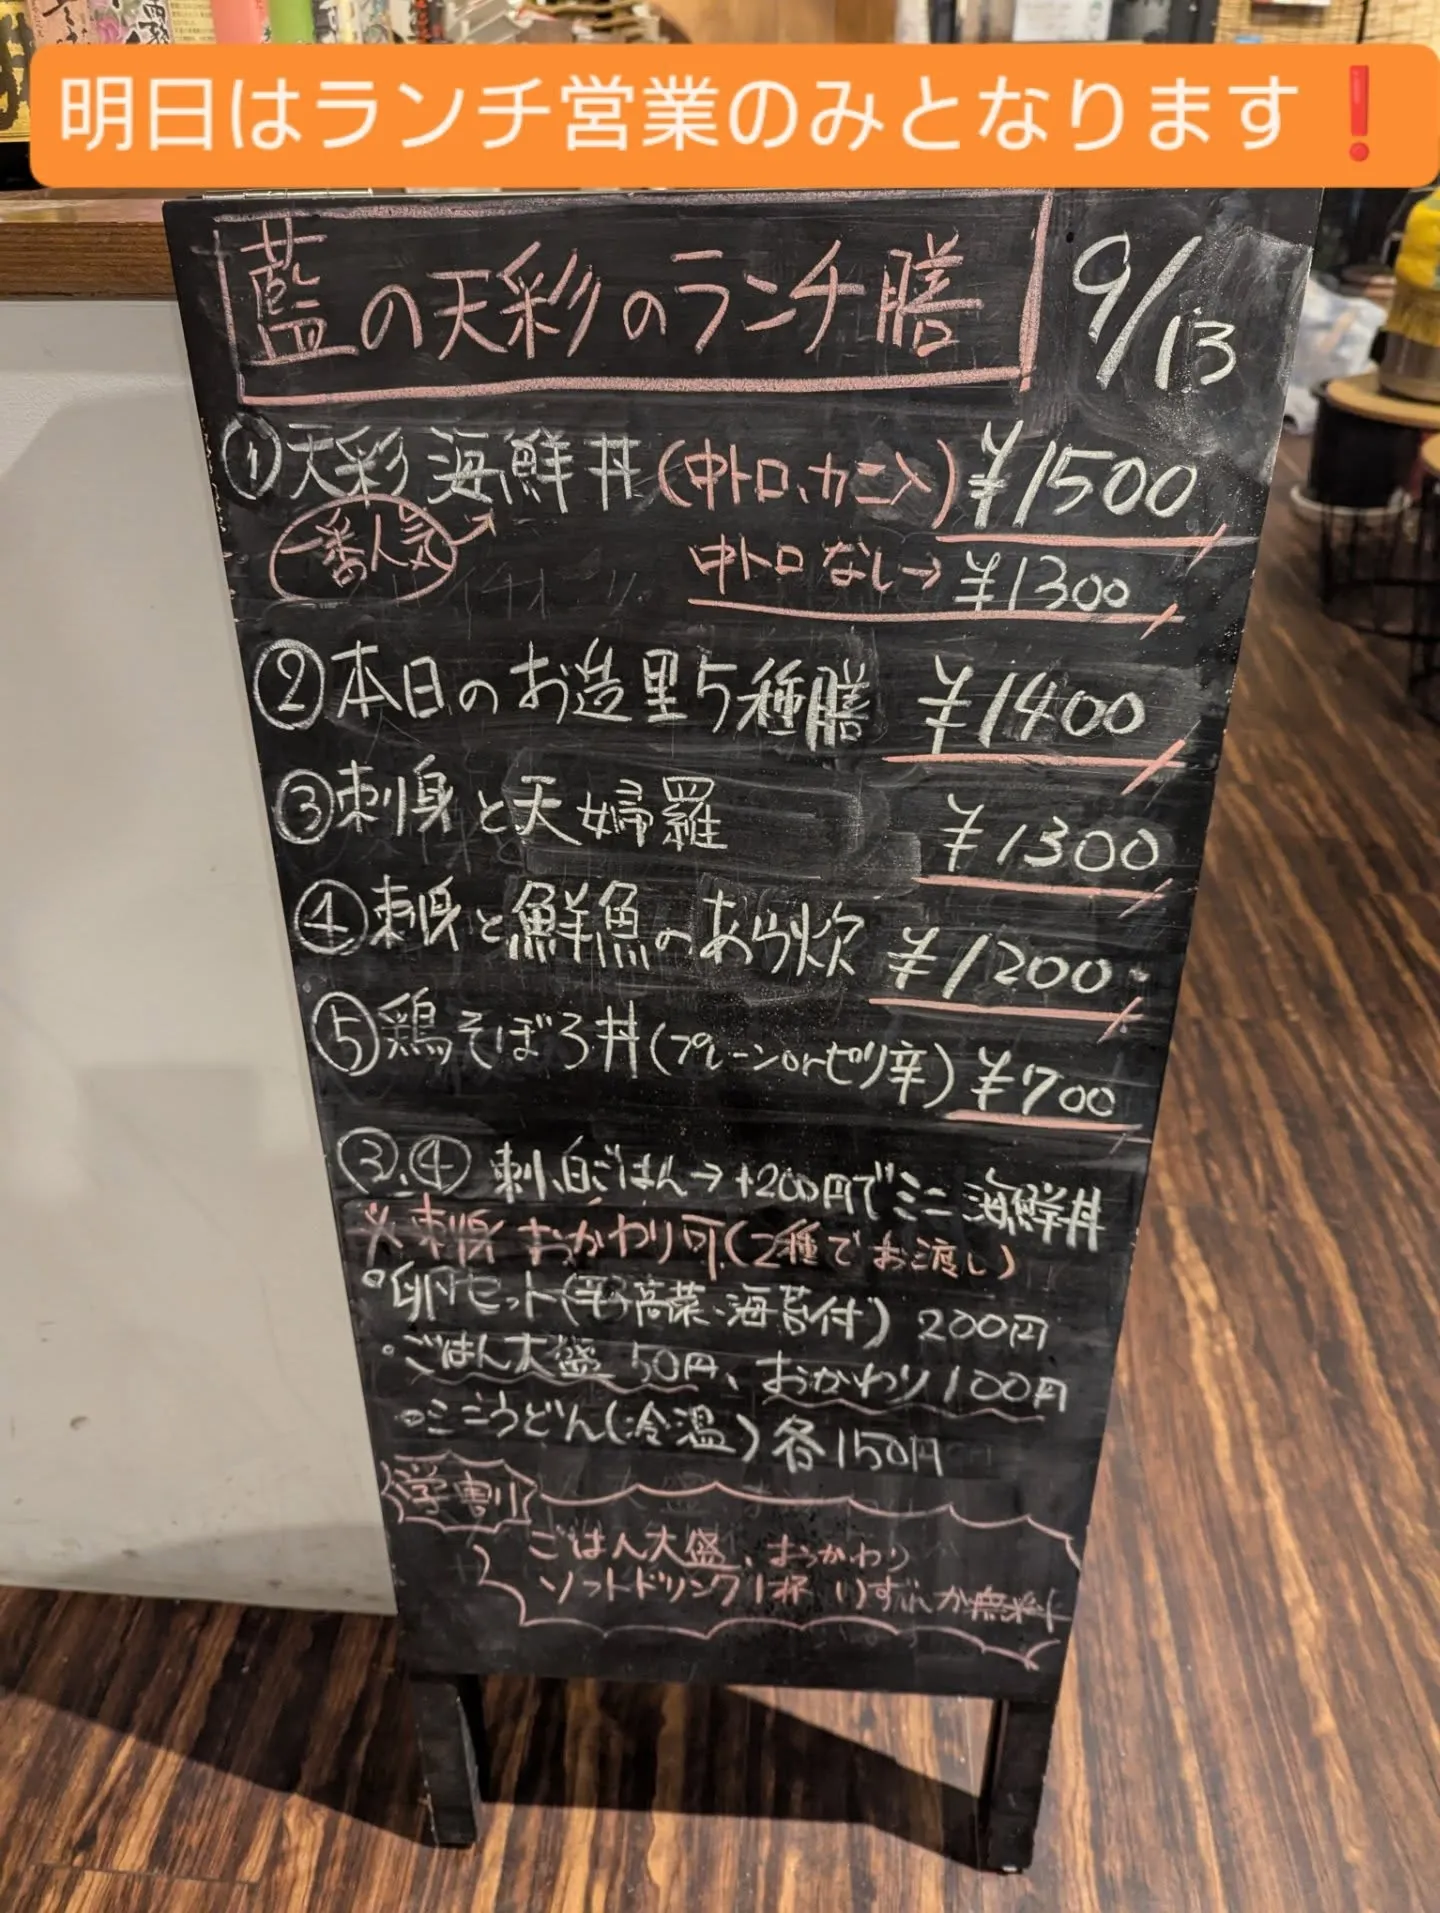 明日はランチ営業のみとなります❗
藍の天彩のランチ膳 9/13
①天彩海鮮丼(中トロ、カニ入) ¥1500
一番人気→ 中トロなし→¥1300
②本日のお造里5種膳 ¥1400
③刺身と天婦羅 ¥1300
④刺身と鮮魚のあら炊 ¥1200
⑤鶏そぼろ丼(プレーンorピリ辛) ¥700
③.④ 刺身ごはん→+200円でミニ海鮮丼
※刺身おかわり可(2種でお渡し)
◦卵セット(辛高菜、海苔付) 200円
◦ごはん大盛50円、おかわり100円
◦ミニうどん(冷温)各150円
学割
ごはん大盛、おかわり
ソフトドリンク1杯 いずれか無料